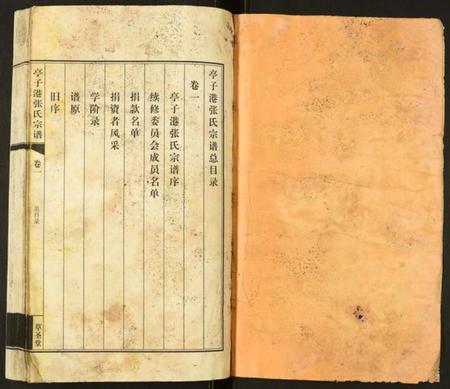 亭子港张氏宗谱总目录
卷一
亭子港张氏宗谱序
续修委员会成员名单
捐款名单
捐资者风采
学阶录
谱原
旧序
亭子港张氏宗谱
卷一
总目录
草圣堂